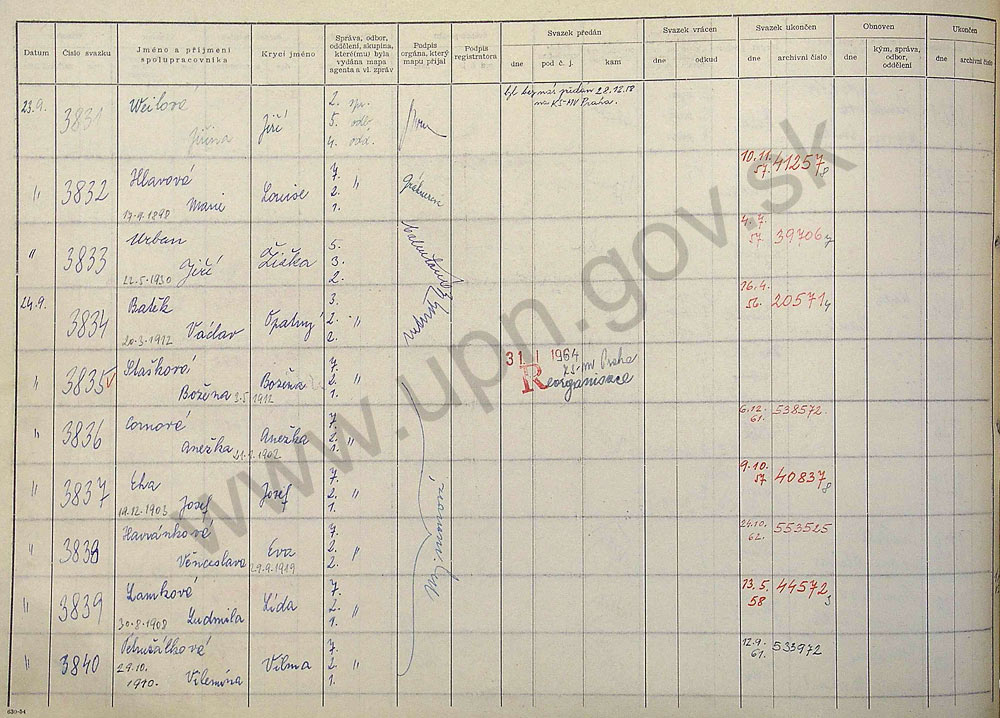 Datum
Číslo svazku
Jméno a příjmení spolupracovníka
Krycí jméno
Správa, odbor, oddělení, skupina, které(mu) byla vydána mapa agenta a vl. zpráv
Podpis orgána, který mapu přijal
Podpis registratora
Svazek předán
dne pod č. j. kam
Svazek vrácen
dne odkud
Svazek ukončen
dne archivní číslo
Obnoven
dne kým, správa, odbor, oddělení
Ukončen
dne archivní číslo
23.9. 3831 Weilova Jiřina Jiří 2. spr. 5. odb. 4. odd.
byl předán 28.12.
na KS-MV Praha.
" 3832 Hlavová Marie 17.9.1898 Louise 7. 2. " 1. 10.11. 57. 41257
" 3833 Urban Jiří 22.5.1930 Žižka 5. 3. 2. 4.7. 57. 39706
24.9. 3834 Batěk Václav 20.3.1912 Opatrný 3. 2. " 2. 16.4. 56. 20571
" 3835 Stašková Božena 3.5.1912 Božena 7. 2. " 1. 31 I 1964 KS-MV Praha
Reorganisace
" 3836 Anežka 1902 Anežka 7. 2. " 1. 6.12. 61. 538572
" 3837 Josef 19.12.1903 Josef 7. 2. " 1. 9.10. 57 40837
" 3838 Havránková Věnceslava 29.9.1919 Eva 7. 2. " 2. 24.10. 62. 553525
" 3839 Lamková Ludmila 30.8.1908 Lída 7. 2. " 1. 13.5. 58 44572
" 3840 Petružálková Vilemína 29.10. 1910. Vilma 7. 2. " 1. 12.9. 61. 533972
630-54
www.upn.gov.sk